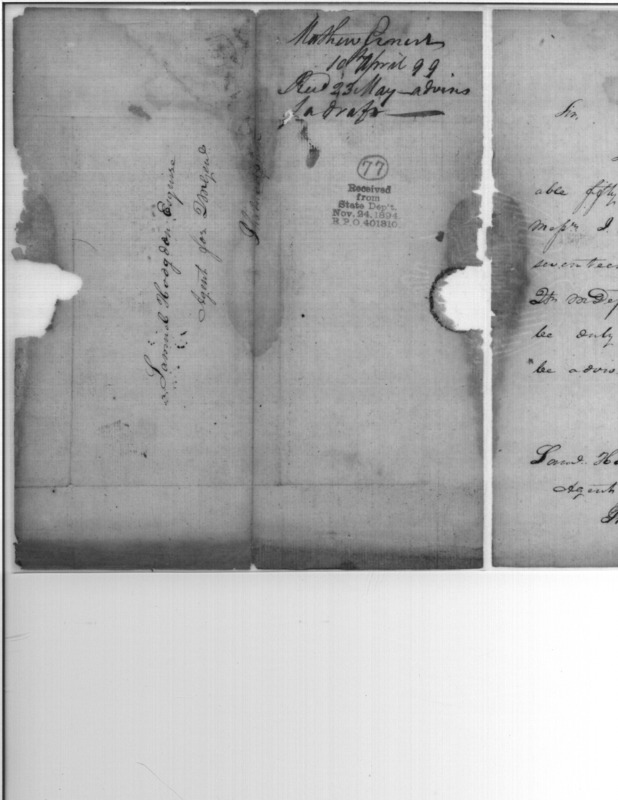 Mathew Ernest
10 April 99
Recd 23 May - advins
of a draft
77
Received
from
State Dep't.
Nov. 24, 1894
R.P.O. 401810
Samuel Hodgdon Esquire
Agent for
Sir,
able fifty
Messrs I
seventeen
be only
be advis
Saml. Ho
Agent